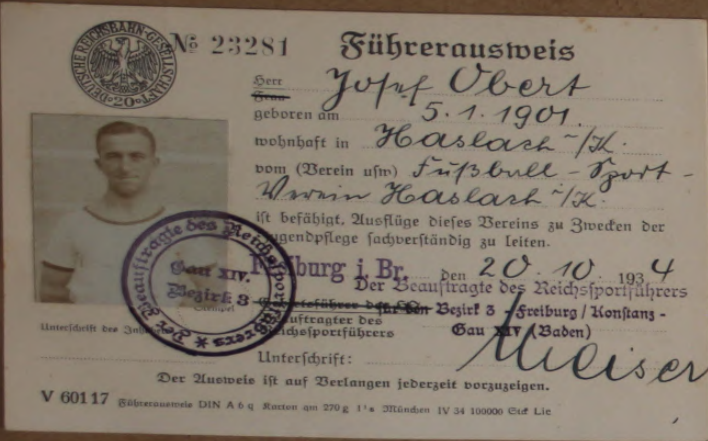 DEUTSCHE REICHSBAHN-GESELLSCHAFT
20
№ 23281
Führerausweis
Herr Josef Obert
Frau
geboren am 5.1.1901.
wohnhaft in Haslach i/K.
vom (Verein usw) Fußball-Sport-
Verein Haslach i/K.
ist befähigt, Ausflüge dieses Vereins zu Zwecken der
Jugendpflege sachverständig zu leiten.
Freiburg i. Br. den 20.10.1934
Der Beauftragte des Reichssportführers
für den Bezirk 3 - Freiburg / Konstanz -
Beauftragter des Gau XIV (Baden)
Reichssportführers
Der Beauftragte des Reichssportführers
Gau XIV.
Bezirk 3
Unterschrift des
Unterschrift: Meiser
Der Ausweis ist auf Verlangen jederzeit vorzuzeigen.
V 60117 Führerausweis DIN A 6 q Karton qm 220 g München IV 34 100000